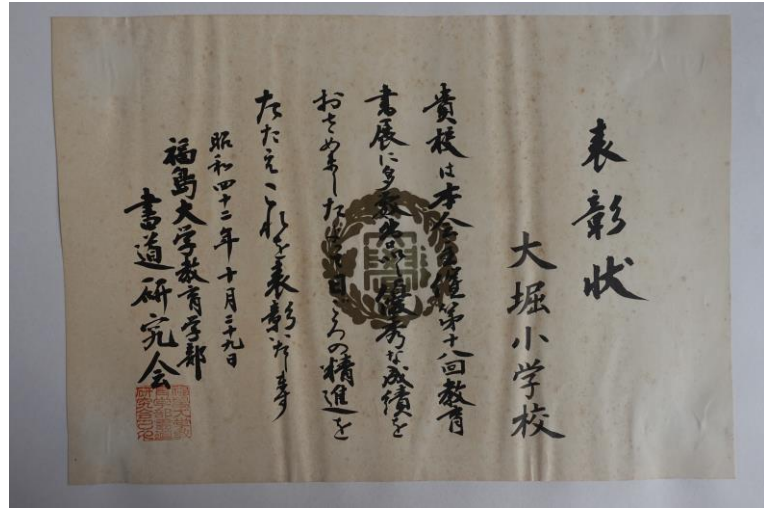 表彰状
大堀小学校
貴校は本会主催第十八回教育
書展に多数出品し優秀な成績を
おさめましたよって日ごろの精進を
たたえこれを表彰します
昭和四十二年十月二十九日
福島大学教育学部
書道研究会